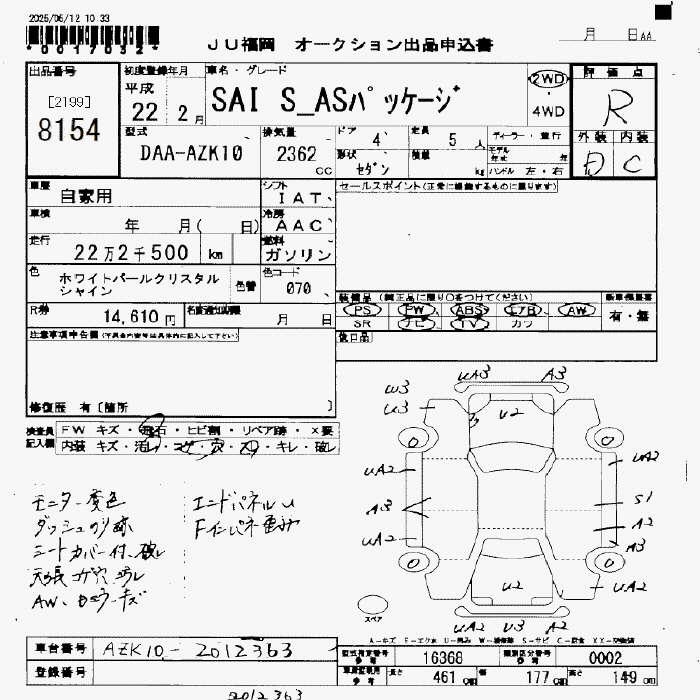 2025/06/12 10:33
*0017032*
JU福岡 オークション出品申込書
月 日 AA
出品番号
[2199]
8154
初度登録年月
平成
22 2月
車名・グレード
SAI S_ASパッケージ
2WD
4WD
評価点
R
外装 内装
D C
型式
DAA-AZK10
排気量
2362
cc
ドア 4
定員 5 人
形状 セダン
積載 kg
ディーラー・並行
モデル
年式 年
ハンドル 左・右
車歴
自家用
シフト
IAT
車検
年 月( 日)
冷房
AAC
走行
22万2千500 km
燃料
ガソリン
色
ホワイトパールクリスタル
シャイン
色替
色コード
070
R券
14,610 円
名義通知期限
月 日
セールスポイント(正常に機能するものに限ります)
装備品 (純正品に限り○をつけてください)
PS PW ABS エアB AW
SR ナビ TV カワ
新車保証書
有・無
後日品
注意事項申告欄(不具合内容等は具体的に記入して下さい)
修復歴 有〔箇所 〕
検査員
記入欄
FW キズ・飛石・ヒビ割・リペア跡・X要
内装 キズ・汚れ・コゲ・穴・スレ・キレ・破レ
モニター変色
ダッシュのり跡
シートカバー付、破レ
天張コゲ穴
エンドパネルU
W3 UA3 A3
U3 U2
UA2 UA2
A3 S1
A2
UA2 A3
U2 UA2
UA2 U3 A2
スペア
A-キズ E-エクボ U-凹み W-補修跡 S-サビ C-腐食 XX-交換済
車台番号
AZK10-2012363
登録番号
型式指定番号
参考
16368
類別区分番号
参考
0002
長さ 461 cm
幅 177 cm
高さ 149 cm
2012363